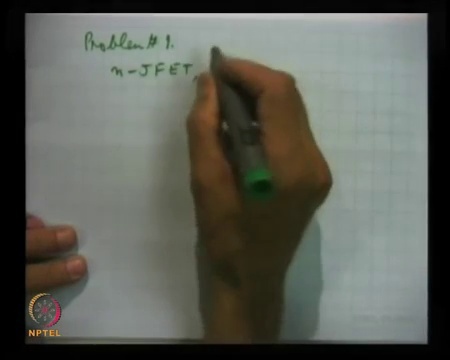 Problem # 1.
n-JFET,
NPTEL